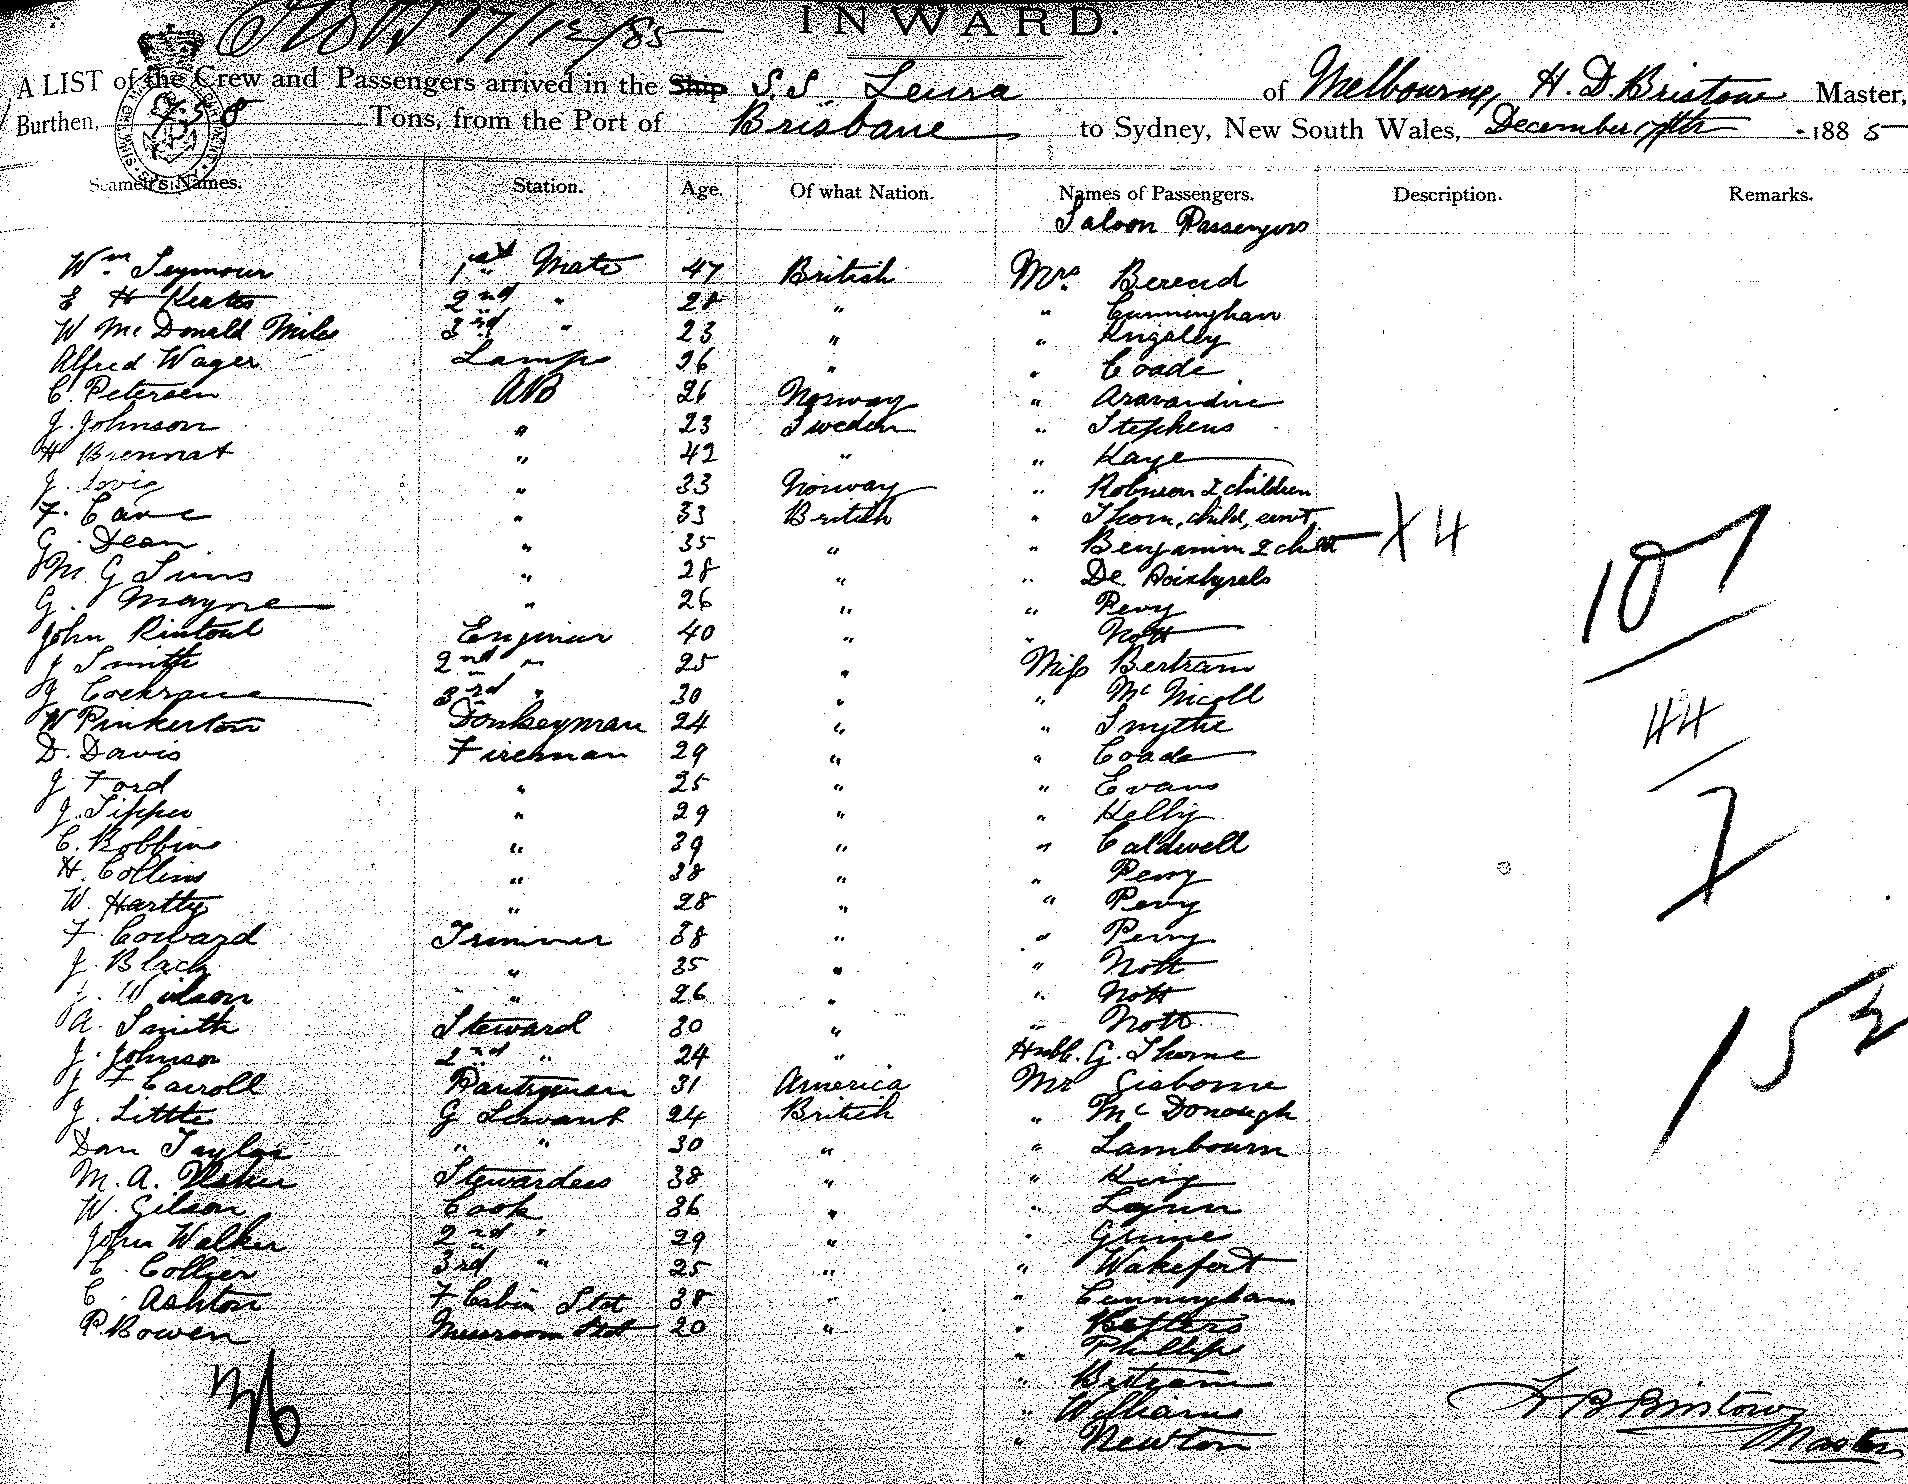 17/12/85
INWARD.
A LIST of the Crew and Passengers arrived in the Ship S.S. Leura of Melbourne, H. D. Bristow Master,
Burthen, 758 Tons, from the Port of Brisbane to Sydney, New South Wales, December 17th 1885
Seamen's Names. Station. Age. Of what Nation. Names of Passengers. Description. Remarks.
Saloon Passengers
Wm Seymour 1st Mate 47 British Mrs Berend
E H Keats 2nd " 28 " " Cunningham
W Mc Donald Mile 3rd " 23 " " Kingsley
Alfred Wager Lamps 26 " " Coade
C. Petersen AB 26 Norway "
J. Johnson " 23 Sweden " Stephens
H Brennat " 42 " " Kaye
J. " 33 Norway " Robinson 2 children
F. Cave " 33 British " Thorn, child, servt
G. Dean " 35 " " Benjamin 2 child X 4
M. G Sims " 28 " " De
G. Mayne " 26 " " Perry
John Rintoul Engineer 40 " " Nott
J Smith 2nd " 25 " Miss Bertram
J Cochrane 3rd " 30 " " Mc Nicoll
W Pinkerton Donkeyman 24 " " Smythe
D. Davis Fireman 29 " " Coade
J Ford " 25 " " Evans
J. Tipper " 29 " " Kelly
C. Robbins " 39 " " Caldwell
H. Collins " 38 " " Perry
W. Hartley " 28 " " Perry
F. Coward Trimmer 38 " " Perry
J. Black " 35 " " Nott
J. Wilson " 26 " " Nott
A. Smith Steward 30 " " Nott
J. Johnson 2nd " 24 " Hnble. G. Thorne
J F Carroll Pantryman 31 America Mr Gisborne
J. Little G Servant 24 British " Mc Donough
Dan Taylor " " 30 " " Lambourn
M. A. Stewardess 38 " " King
W. Gilson Cook 36 " " Lynn
John Walker 2nd " 29 " " Grimes
C. Collier 3rd " 25 " " Wakefort
C. Ashton F Cabin Std 38 " " Cunningham
P. Bowen Messroom Std 20 " "
" Phillips
" Bertram
" Williams
" Newton
107
44
2
153
36
H D Bristow
Master